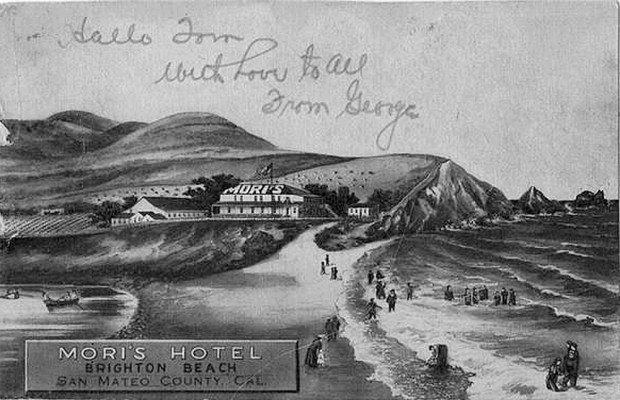 Hallo Tom
With Love to All
From George
MORI'S
MORI'S HOTEL
BRIGHTON BEACH
SAN MATEO COUNTY, CAL.